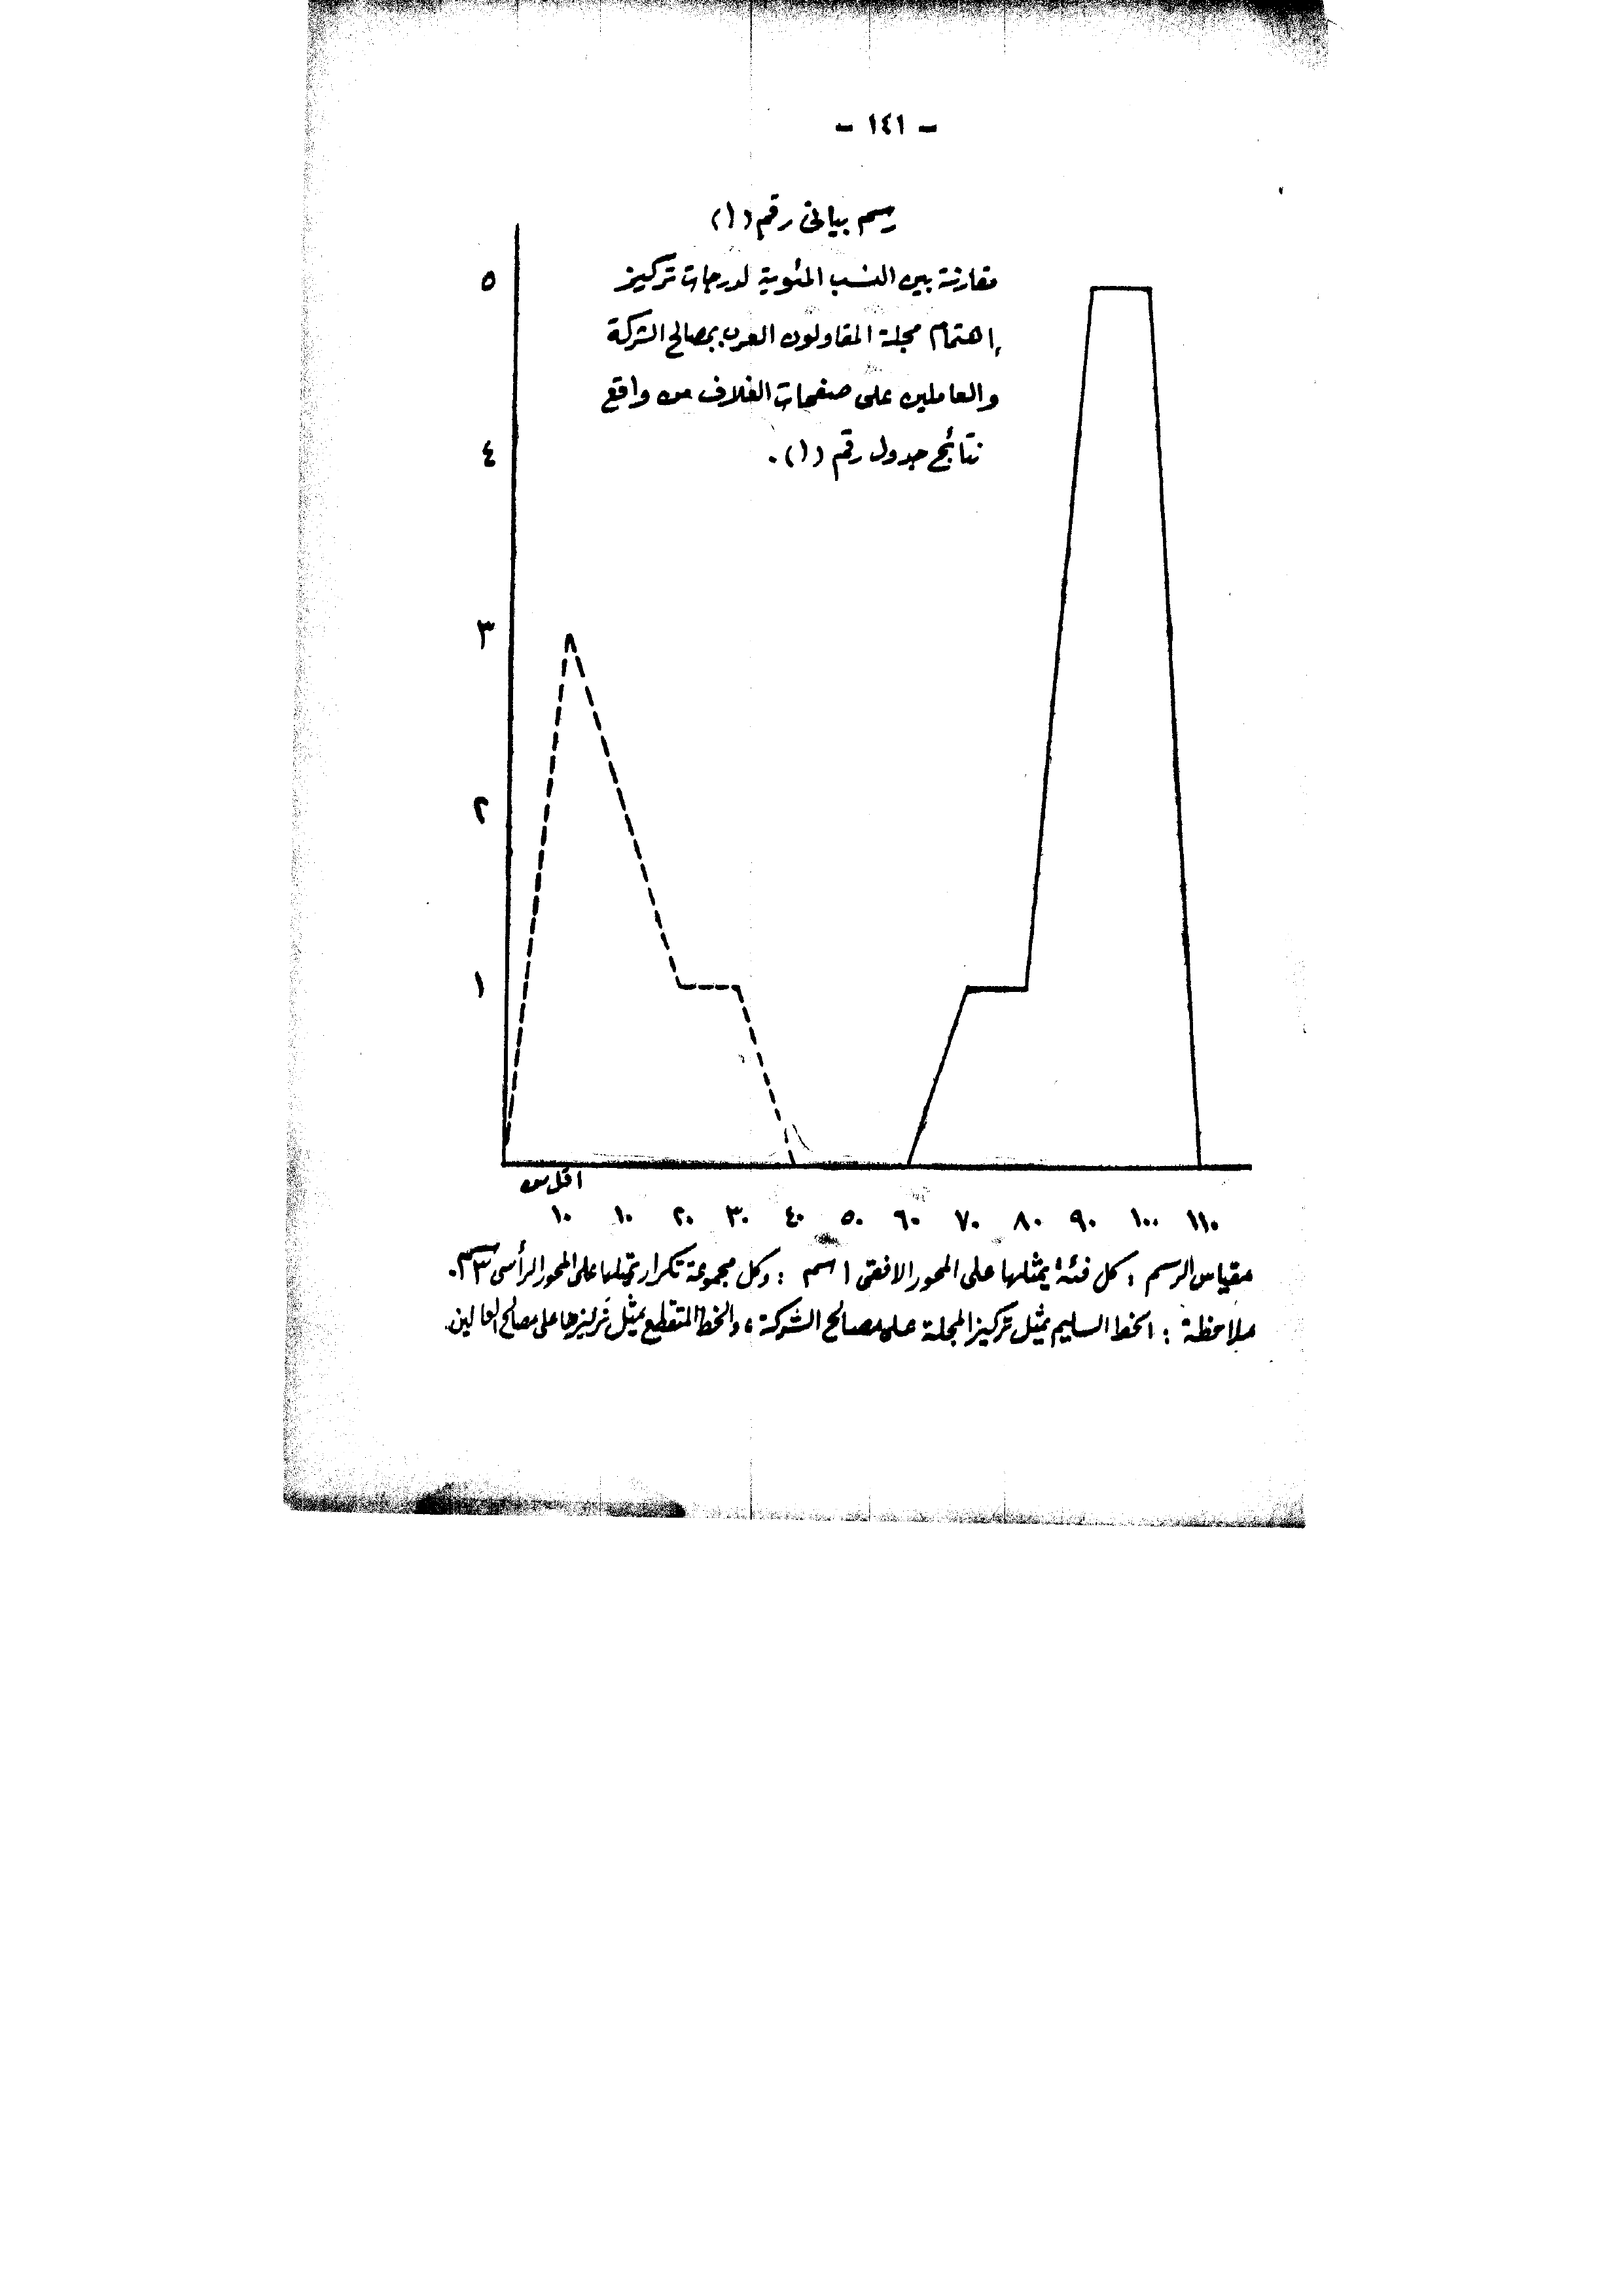 - ١٤١ -
رسم بيانى رقم (١)
مقارنة بين النسب المئوية لدرجات تركيز
إهتمام مجلة المقاولون العرب بمصالح الشركة
والعاملين على صفحات الغلاف من واقع
نتائج جدول رقم (١).
٥
٤
٣
٢
١
اقل من
١٠ ١٠ ٢٠ ٣٠ ٤٠ ٥٠ ٦٠ ٧٠ ٨٠ ٩٠ ١٠٠ ١١٠
مقياس الرسم : كل فئة يمثلها على المحور الافقى ١ سم : وكل مجموعة تكرار يمثلها على المحور الرأسى ٣ سم.
ملاحظة : الخط السليم يمثل تركيز المجلة على مصالح الشركة ، والخط المتقطع يمثل تركيزها على مصالح العاملين.